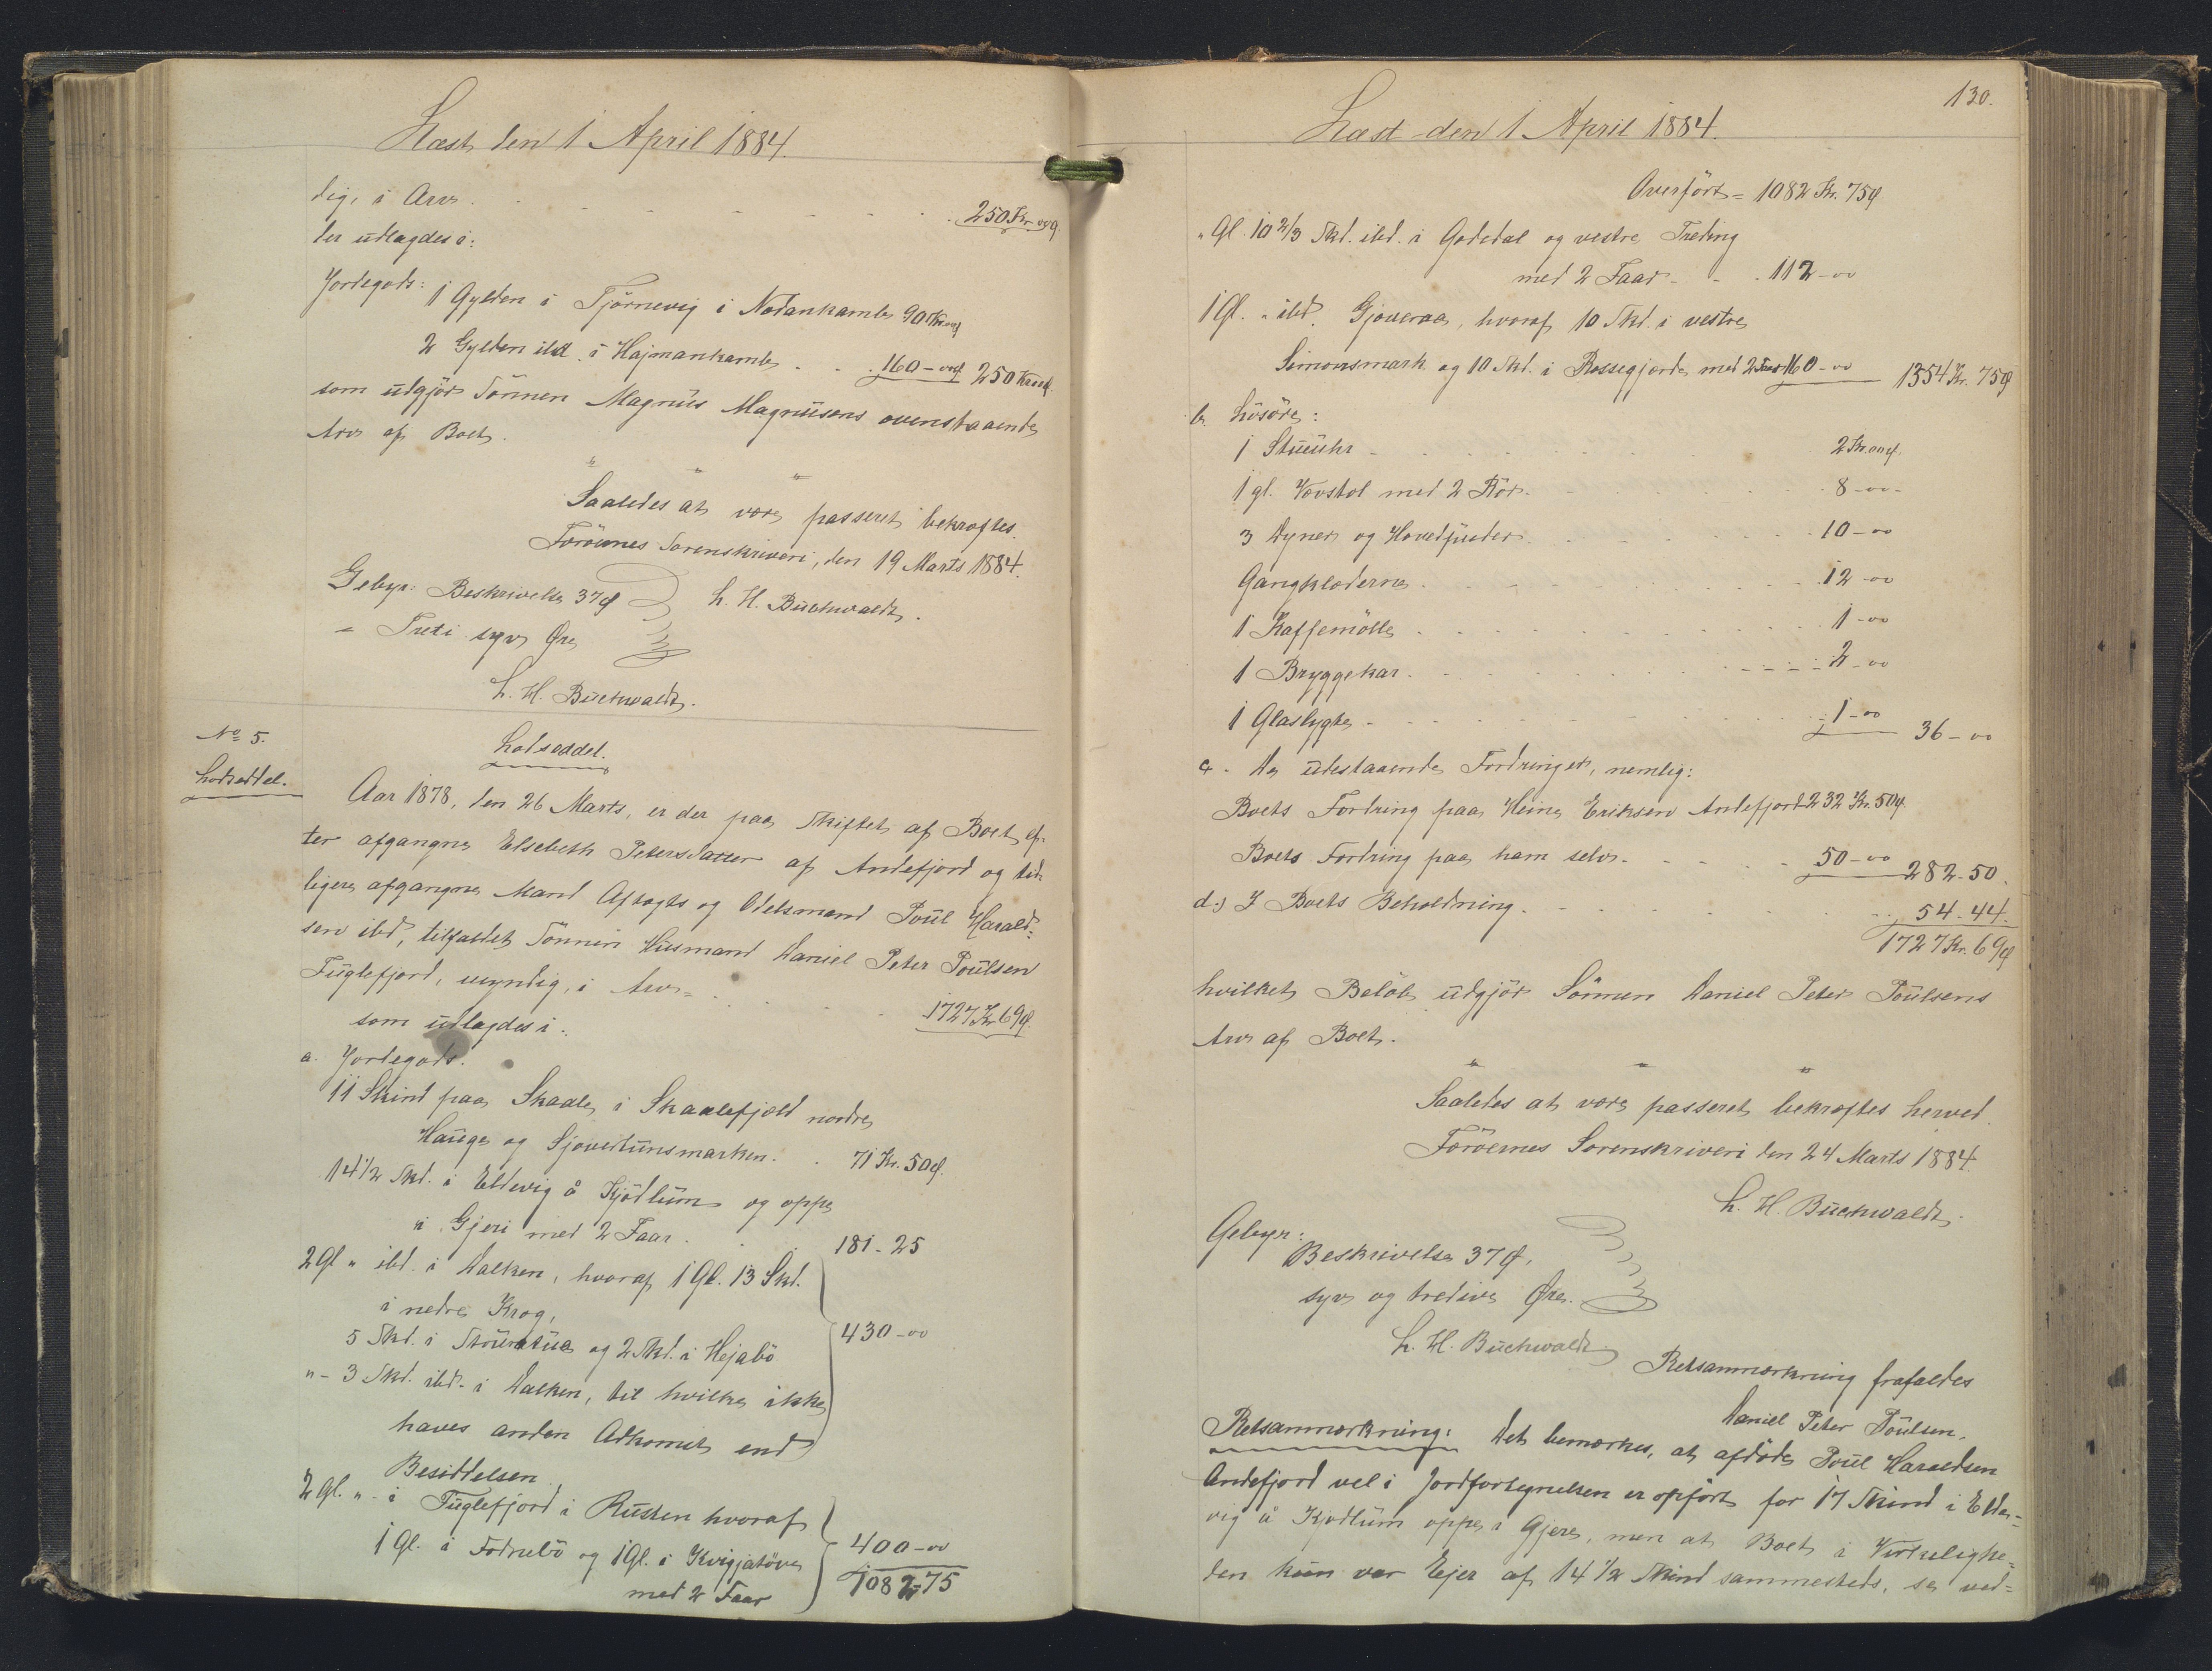 Læst den 1 April 1884.
dig, i Arv . . . . . . . 250 Kr. 00 Ø
der udlagdes i:
Jordegods: 1 Gylden i Tjörnevig i Nordankambe 90 Kr. 00 Ø
2 Gylden ibd. i Hajmankambe . . 160 - 00 Ø 250 Kr. 00 Ø
som udgjör Sönnen Magnus Magnusens ovenstaaende
Arv af Boet.
" " "
Saaledes at være passeret bekræftes.
Færöernes Sorenskriveri, den 19 Marts 1884.
Gebyr: Beskrivelse 37 Ø L. H. Buchwaldt.
= Treti syv Øre
L. H. Buchwaldt.
No 5.
Lodseddel.
Lodseddel.
Aar 1878, den 26 Marts, er der paa Skiftet af Boet ef-
ter afgangne Elsebeth Petersdatter af Andefjord og tid-
ligere afgangne Mand Aftægts og Odelsmand Poul Harald-
sen ibd, tilfaldet Sönnen Husmand Daniel Peter Poulsen
Fuglefjord, myndig, i Arv = . . . . 1727 Kr 69 Ø
som udlagdes i:
a. Jordegods.
11 Skind paa Skaale i Skaalefjæld nordre
Hauge og Sjoverlunsmarken . . 71 Kr. 50 Ø.
14 1/2 Skd. i Eldevig å Kjödlum og oppe
i Gjeri med 2 Faar . . 181 - 25
2 Gl " ibd. i Dalken, hvoraf 1 Gl. 13 Skd.
i nedre Krog,
5 Skd. i Stourutue og 2 Skd. i Hejabö 430 - 00
" - 3 Skd. ibd. i Dalken, til hvilke ikke
haves anden Adkomst end
Besiddelsen
2 Gl. " - i Fuglefjord i Rusten hvoraf
1 Gl. i Fodnebö og 1 Gl. i Kvigjatöve 400 - 00
med 2 Faar 1082 - 75
130.
Læst den 1 April 1884.
Overfört = 1082 Kr. 75 Ø
" Gl. 10 2/3 Skd. ibd. i Godedal og vestre Treding
med 2 Faar - - . 112 - 00
1 Gl. " ibd. Gjoveraa, hvoraf 10 Skd. i vestre
Simonsmark og 10 Skd. i Rossegjorde med 2 Faar 160 - 00 1354 Kr. 75 Ø
b. Lösöre:
1 Stueuhr - . . . . . 2 Kr. 00 Ø.
1 gl. Vævstol med 2 Rör . . . . . 8 - 00 -
3 Dyner og Hovedpuder . . . . . 10 - 00
Gangklæderne . . . . . 12 - 00
1 Kaffemölle . . . . . 1 - 00
1 Bryggekar . . . . . 2 - 00
1 Glaslygte - . . . . . 1 - 00 36 - 00
c. De udestaaende Fordringer, nemlig:
Boets Fordring paa Heine Eriksen Andefjord 232 Kr. 50 Ø.
Boets Fordring paa ham selv . . . . 50 - 00 282 - 50.
d.) I Boets Beholdning . . . . . 54 - 44.
1727 Kr. 69 Ø
hvilket Belöb udgjör Sönnen Daniel Peter Poulsens
Arv af Boet.
" " "
Saaledes at være passeret bekræftes herved.
Færöernes Sorenskriveri den 24 Marts 1884.
L. H. Buchwaldt.
Gebyr:
Beskrivelse 37 Ø.
syv og tredive Øre.
L. H. Buchwaldt
Retsanmærkning frafaldes
Daniel Peter Poulsen.
Retsanmærkning: Det bemærkes, at afdöde Poul Haraldsen
Andefjord vel i Jordfortegnelsen er opfört for 17 Skind i Elde-
vig å Kjodlum oppe i Gjere, men at Boet i Virkelighe=
den kun var Ejer af 14 1/2 Skind sammesteds, se ved=